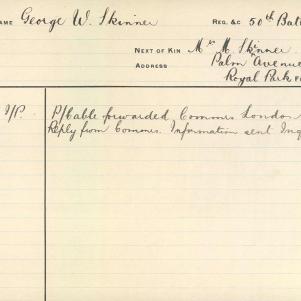 NAME George W. Skinner REG. &C 50th Batt
NEXT OF KIN Mrs M. Skinner.
ADDRESS Palm Avenue
Royal Park
I/P. P/Cable forwarded Commrs London
Reply from Commrs. Information sent Inq